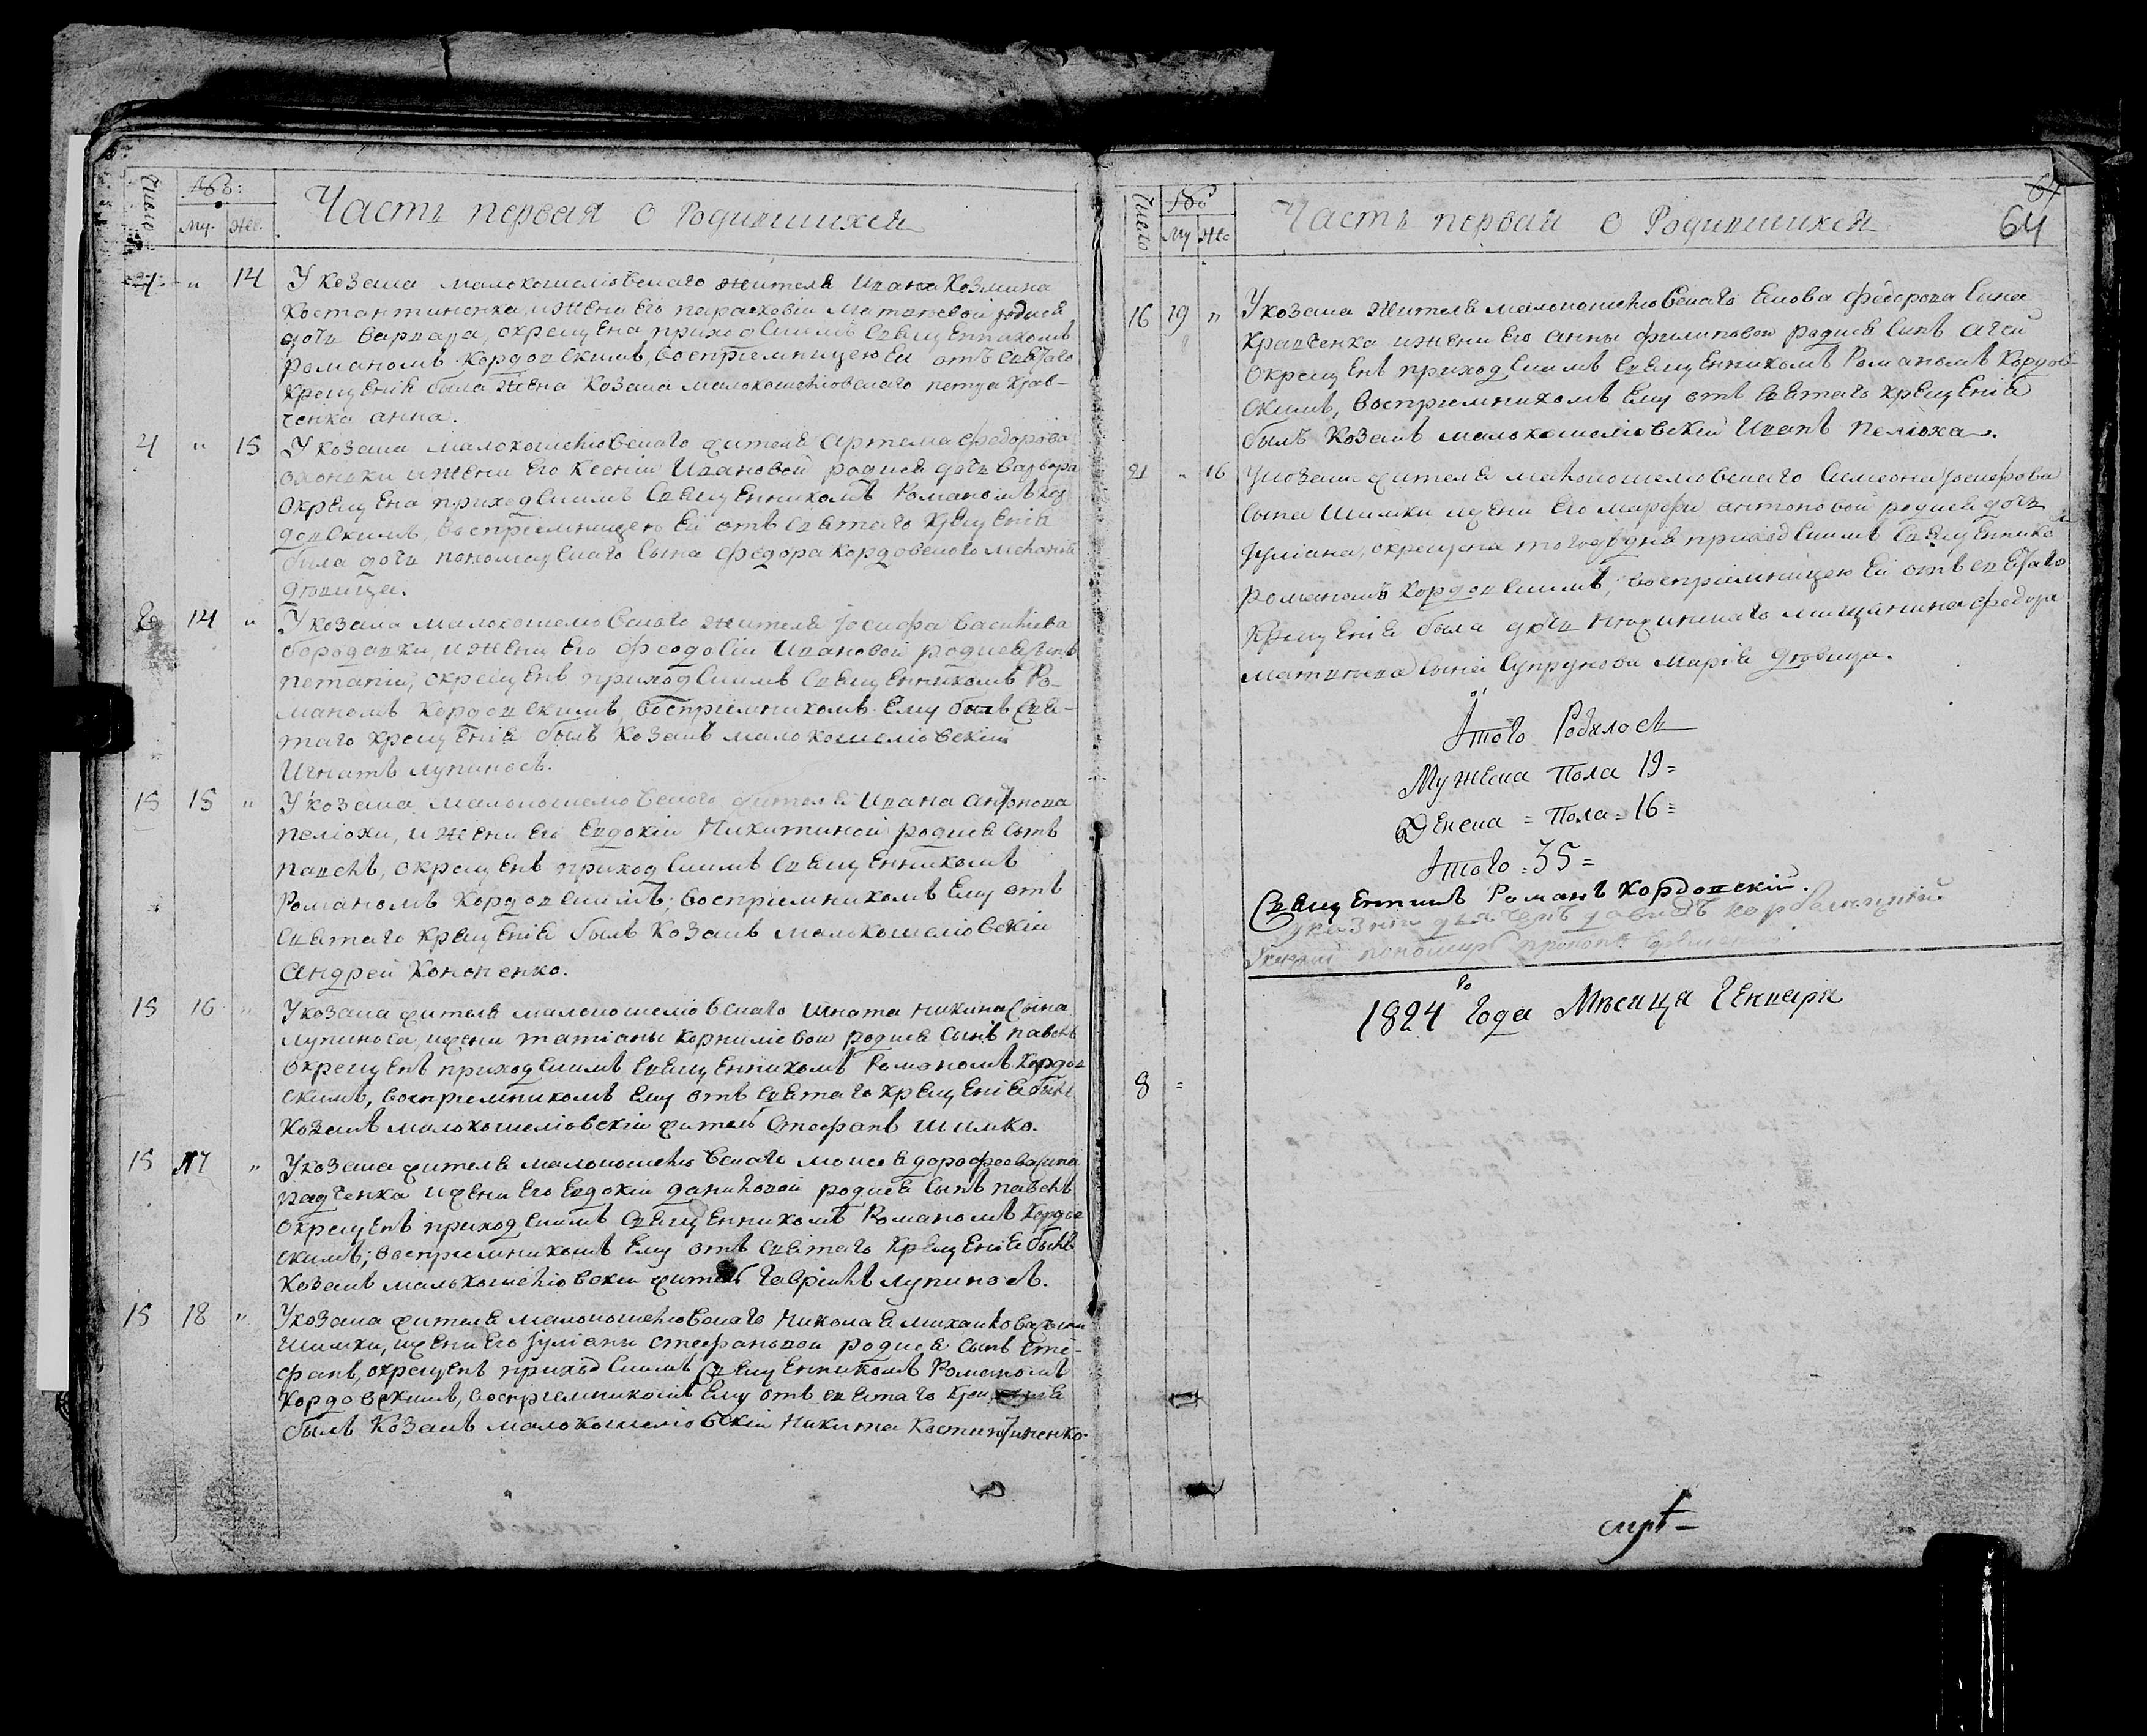 Число
Му.
Же.
Часть первая о Родившихся
4 " 14 У козака малокошелювскаго жителя Ивана Козмина
Костантиненка, и жены его параскевіи Матвѣевой родися
дочь варвара, окрещена приходскимъ Священникомъ
Романомъ Кордовскимъ, воспріемницею ей отъ Святаго
Крещенія была жена козака малокошелювскаго петра Крав-
ченка анна.
4 " 15 У козака малокошелювскаго жителя Артема Федорова
и жены его Ксеніи Ивановой родися дочь варвара
окрещена приходскимъ Священникомъ Романомъ Кор-
довскимъ, воспріемницею ей отъ святаго Крещенія
была дочь пономарскаго сына Федора Кордовскаго
дѣвица.
14 " У козака малокошелювскаго жителя Іосифа Василіева
бородавки, и жены его Феодосіи Ивановой родися сынъ
окрещенъ приходскимъ Священникомъ Ро-
маномъ Кордовскимъ, воспріемникомъ ему Свя-
таго крещенія былъ козакъ малокошелювскій
Игнатъ лупиносъ.
15 15 " У козака малокошелювскаго жителя Ивана
пелюхи, и жены его Евдокіи Никитиной родися сынъ
павелъ, окрещенъ приходскимъ Священникомъ
Романомъ Кордовскимъ; воспріемникомъ ему отъ
святаго крещенія былъ козакъ малокошелювскій
Андрей Кононенко.
15 16 " У козака жителя малокошелювскаго Игната сына
Лупиноса, и жены татіаны корниліевои родися сынъ павелъ
окрещенъ приходскимъ священникомъ Романомъ Кордов
скимъ, воспріемникомъ ему отъ святаго крещенія былъ
козакъ малокошелювскій житель Стефанъ шимко.
15 17 " У козака жителя малокошелювскаго моисея дорофеева сына
радченка и жены его Евдокіи даниловой родися сынъ павелъ
окрещенъ приходскимъ Священникомъ Романомъ Кордов
скимъ; воспріемникомъ ему отъ святаго крещенія былъ
козакъ малокошелювскій житель гавріилъ лупиносъ.
15 18 " У козака жителя малокошелювскаго Николая михаилова сына
шимки, и жены его Іуліаны стефановой родися сынъ сте-
фанъ, окрещенъ приходскимъ Священникомъ Романомъ
Кордовскимъ, воспріемникомъ ему отъ святаго
былъ козакъ малокошелювскій Никита Костантиненко.
64
Число
Му
Же
Часть первая о Родившихся
64
16 19 " У козака жителя малокошелювскаго Іакова федорова сына
Кравченка и жены его анны филиповои родися сынъ
Окрещенъ приходскимъ священникомъ Романомъ Кордов
скимъ, воспріемникомъ ему отъ святаго крещенія
былъ козакъ малокошелювскій Иванъ пелюха.
21 " 16 У козака жителя малокошелювскаго Симеона
сына шимки и жены его марфы антоновой родися дочь
Іуліана, окрещена тогожъ дня приходскимъ священнико
Романомъ Кордовскимъ; воспріемницею ей отъ святаго
Крещенія была дочь мищанина федора
матвѣева сына Супрунова Марія дѣвица.
Итого Родилось
Мужеска Пола 19=
Женска = Пола = 16=
Итого = 35=
Священникъ Романъ Кордовскій.
пономарь
1824 го Года Мѣсяца Генваря
8 =